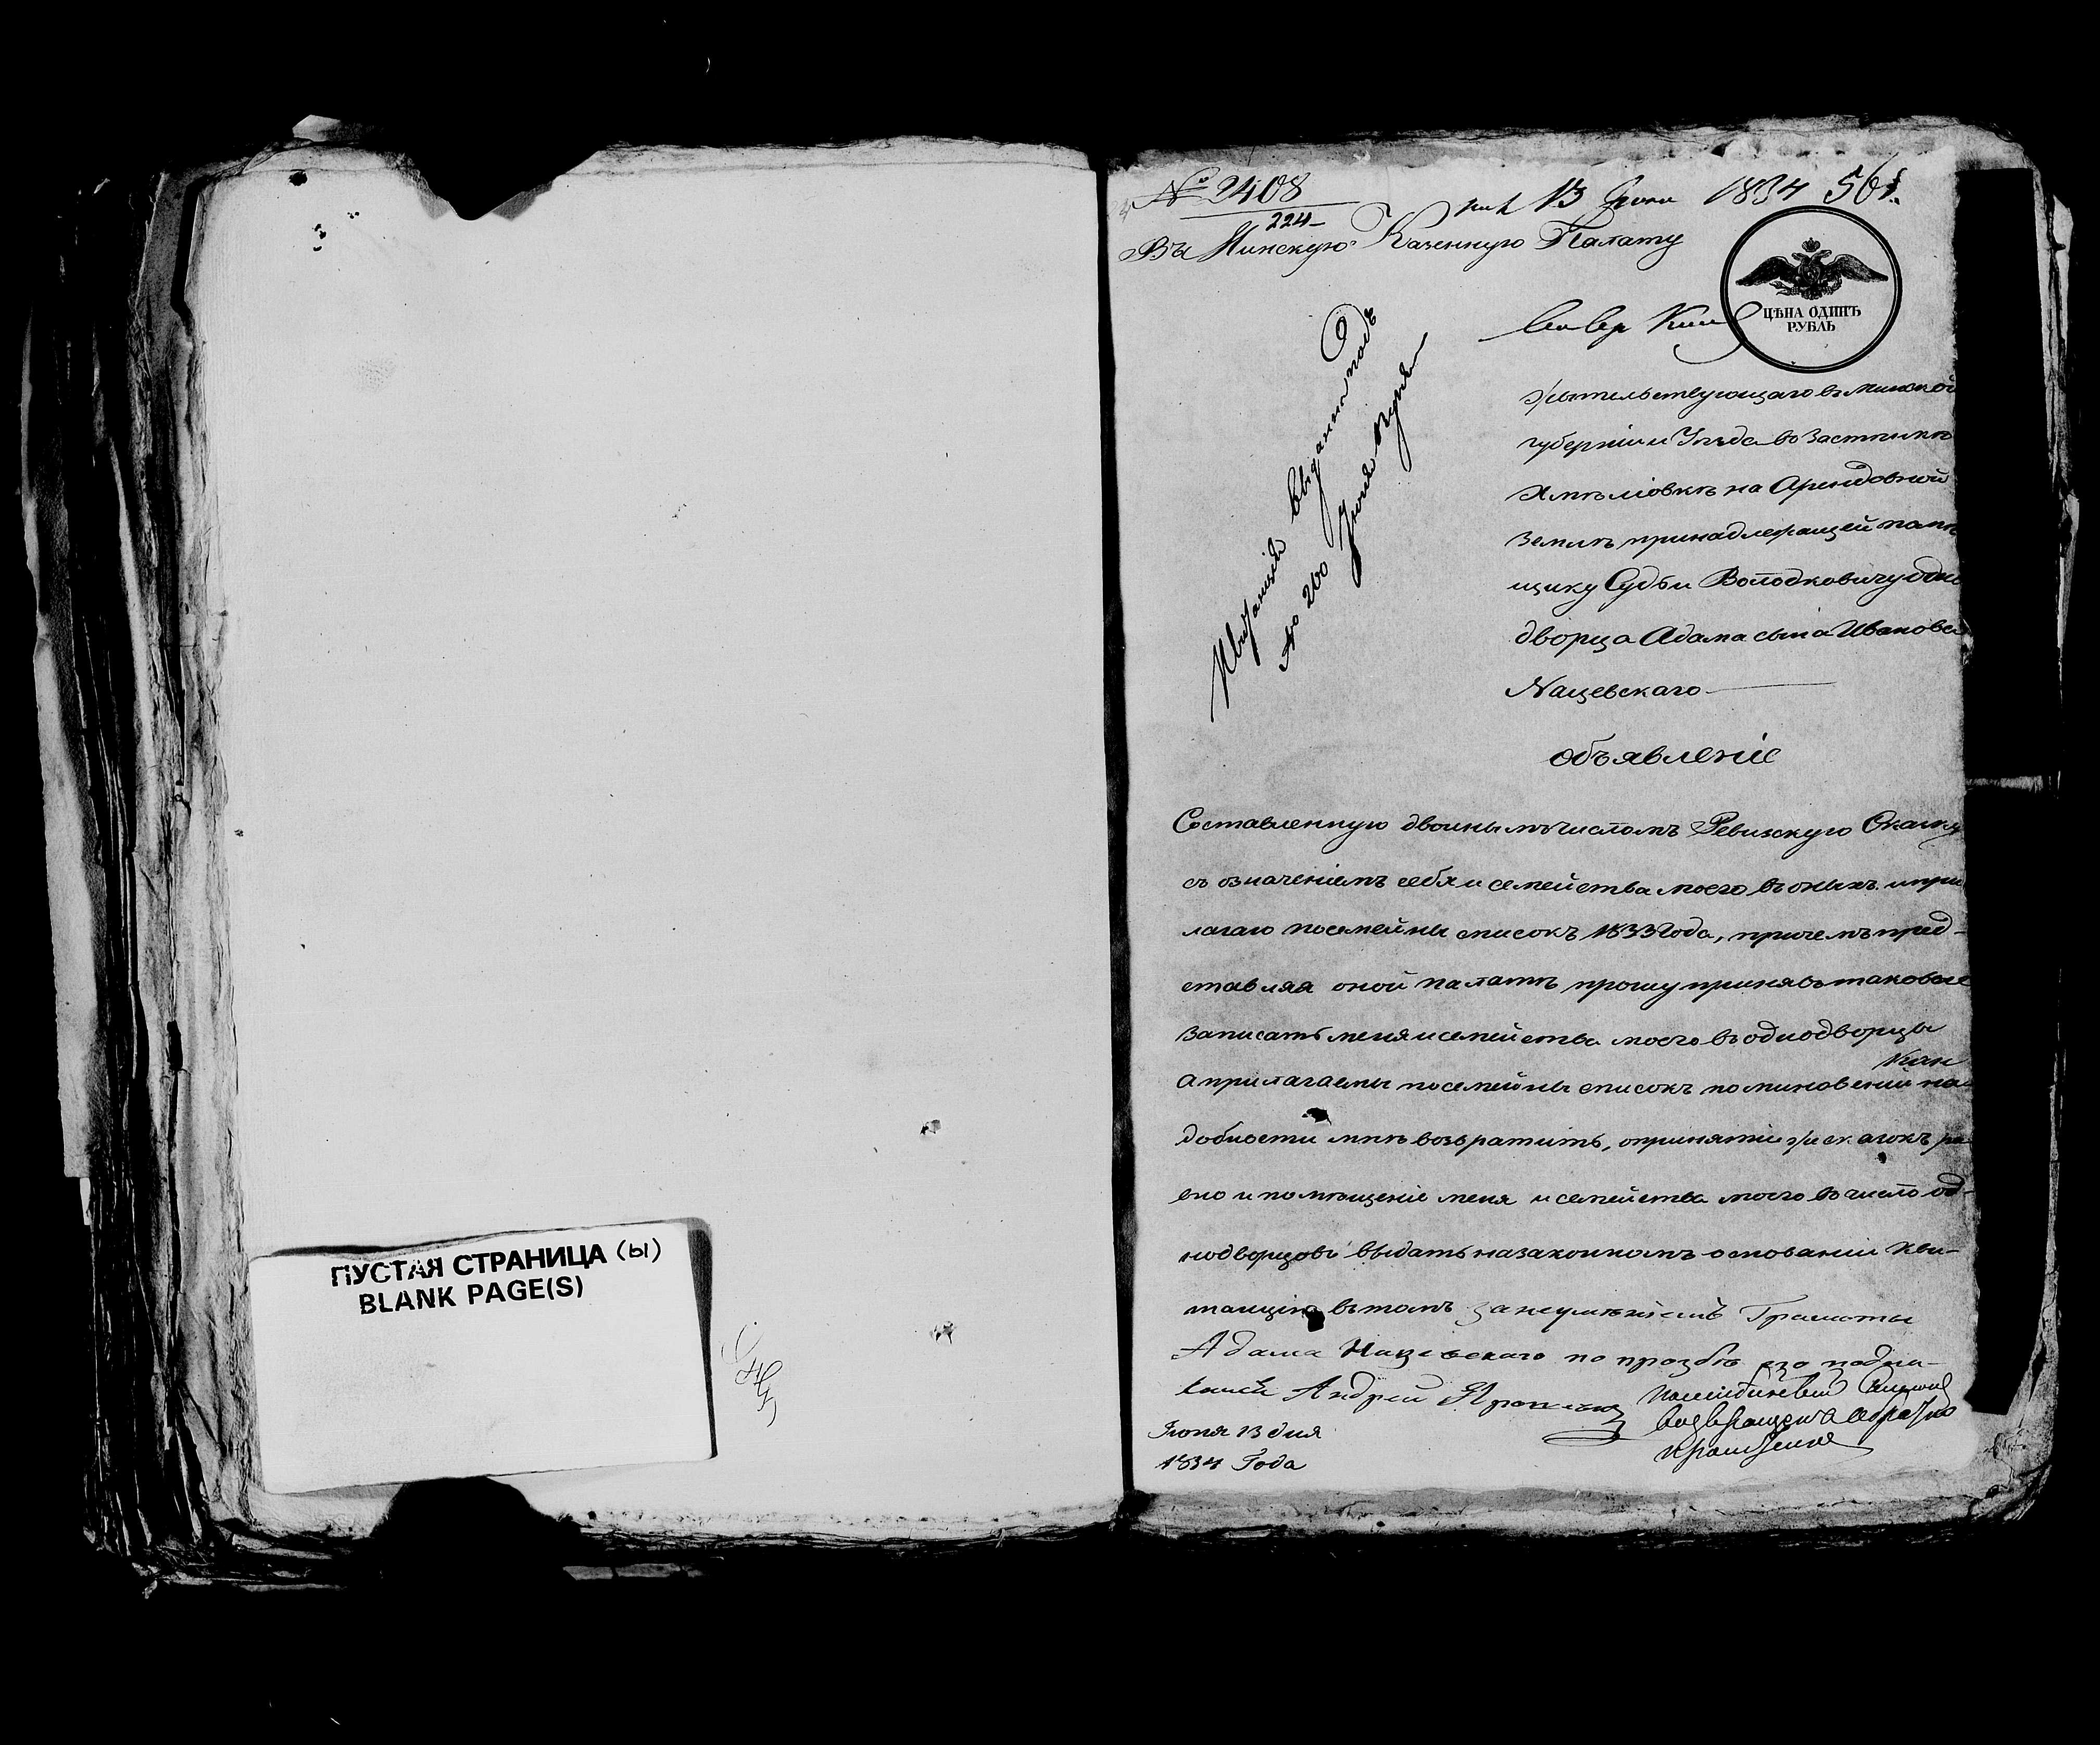 ПУСТАЯ СТРАНИЦА (ы)
BLANK PAGE(S)
№ 2408 13 Іюня 1834 561.
224
Въ Минскую Казенную Палату
ЦѢНА ОДИНЪ
РУБЛЬ
Квитанція выдана подъ
№ 260 Іюня
жительствующаго въ минской
губерніи и Уѣзда во Застѣнкѣ
на Арендовной
землѣ принадлежащей помѣ
щику Судьи Володковичу одно
дворца Адама сына Иванова
Нацевскаго
объявленіе
Составленную двойнымъ числомъ Ревизскую Скаску
съ означеніемъ себя и семейства моего въ оныхъ и при
лагаю посемейны списокъ 1833 Года, причемъ пред-
ставляя оной палатѣ прошу принявъ таковые
записать меня и семейства моего въ однодворцы
а прилагаемы посемейны списокъ по миновеніи на
добности мнѣ возвратить, о принятіи же скасокъ ра
вно и помѣщеніе меня и семейства моего въ число од-
нодворцовъ выдать на законномъ основаніи кви-
танцію въ томъ за неумѣніемъ Грамоты
Адама Нацевскаго по прозбѣ его подпи-
Андрей
Іюня 13 дня
1834 Года